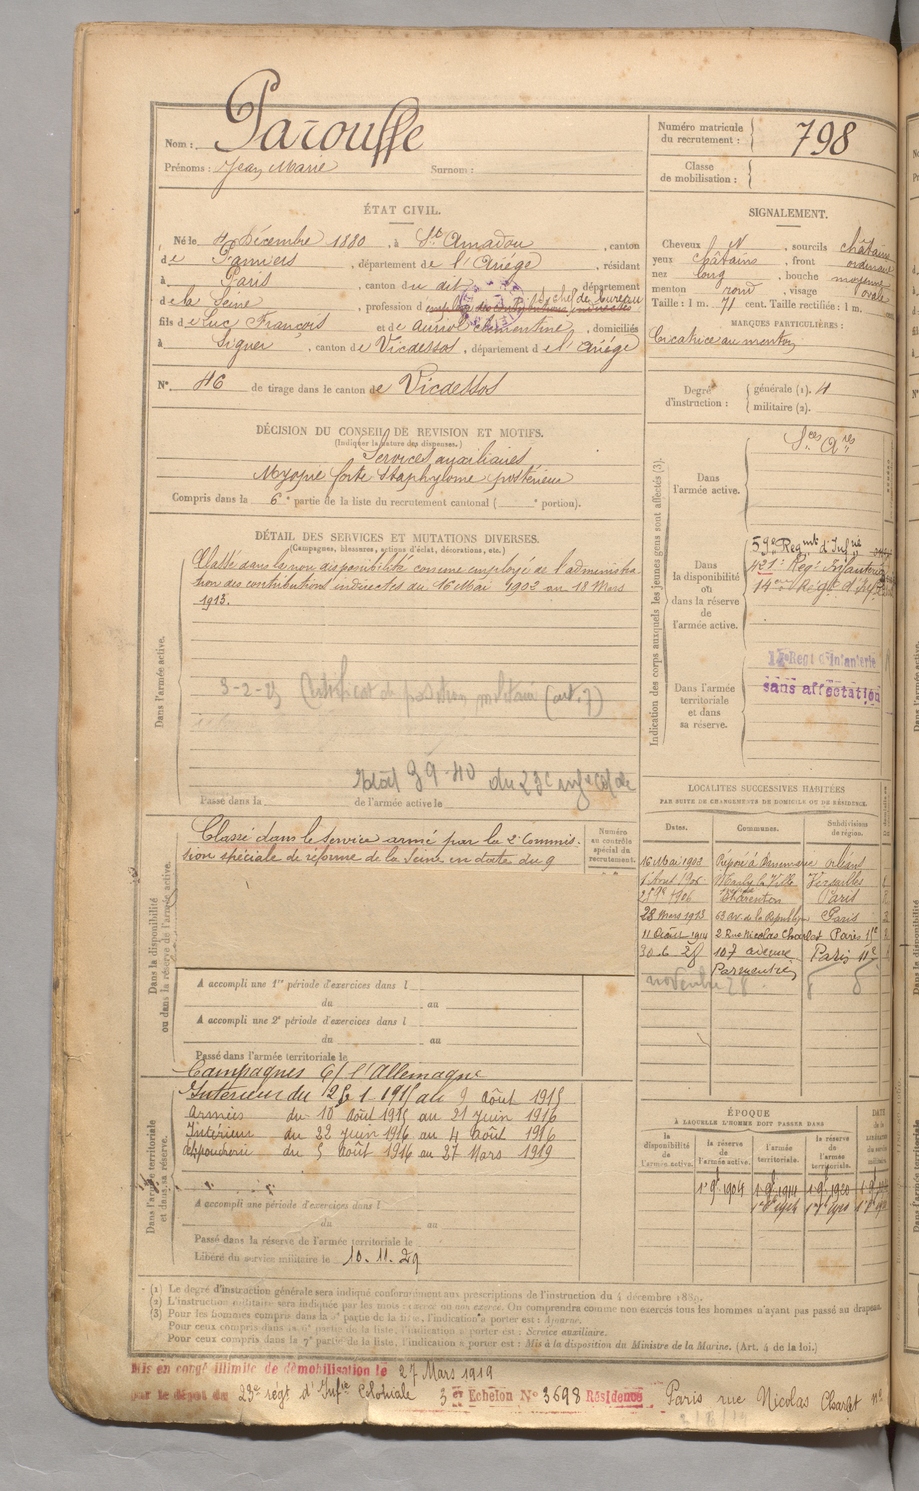 Nom : Parouffe
Prénoms : Jean Marie Surnom :
Numéro matricule du recrutement : 798
Classe de mobilisation :
ÉTAT CIVIL.
Né le 4 Décembre 1880, à St Amadou, canton
de Pamiers, département de l'Ariège, résidant
à Paris, canton du dit, département
de la Seine, profession d'employé des contributions indirectes chef de bureau
fils de Luc François et de Auriol Clémentine, domiciliés
à Siguer, canton de Vicdessos, département de l'Ariège
SIGNALEMENT.
Cheveux N, sourcils châtains
yeux châtains, front ordinaire
nez long, bouche moyenne
menton rond, visage ovale
Taille : 1 m. 71 cent. Taille rectifiée : 1 m.
MARQUES PARTICULIÈRES :
Cicatrice au menton
N° 46 de tirage dans le canton de Vicdessos
Degré d'instruction : générale (1). 4
militaire (2).
DÉCISION DU CONSEIL DE REVISION ET MOTIFS.
(Indiquer la nature des dispenses.)
Services auxiliaires
Myopie forte Staphylome postérieur
Compris dans la 6e partie de la liste du recrutement cantonal ( e portion).
DÉTAIL DES SERVICES ET MUTATIONS DIVERSES.
(Campagnes, blessures, actions d'éclat, décorations, etc.)
Dans l'armée active.
Classé dans la non disponibilité comme employé de l'administra-
tion des contributions indirectes du 16 Mai 1902 au 18 Mars
1913.
3-2-25 Certificat de position militaire (art. 7)
39-40 du 23e
Passé dans la de l'armée active le
Indication des corps auxquels les jeunes gens sont affectés (3).
Dans l'armée active.
Sces Ares
Dans la disponibilité ou dans la réserve de l'armée active.
59e Regmt d'Infrie
421e Regt Infanterie
14e Regt d'Inf
Dans l'armée territoriale et dans sa réserve.
Regt d'Infanterie
sans affectation
Dans la disponibilité ou dans la réserve de l'armée active.
Classé dans le service armé par la 2e Commis-
sion spéciale de réforme de la Seine en date du 9
Numéro au contrôle spécial du recrutement.
A accompli une 1re période d'exercices dans l
du au
A accompli une 2e période d'exercices dans l
du au
Passé dans l'armée territoriale le
LOCALITÉS SUCCESSIVES HABITÉES
PAR SUITE DE CHANGEMENTS DE DOMICILE OU DE RÉSIDENCE.
Dates. Communes. Subdivision de région.
16 Mai 1902 Orléans
Marly la Ville Versailles
1906 Charenton Paris
28 Mars 1913 63 av. de la République Paris
11 Août 1914 2 Rue Nicolas Charlet Paris 11e
30.6.28 107 avenue Parmentier Paris 11e
novembre 28
Dans l'armée territoriale et dans sa réserve.
Campagnes c/ l'Allemagne
Intérieur du 25-1-1915 au 9 Août 1915
Armées du 10 Août 1915 au 21 Juin 1916
Intérieur du 22 Juin 1916 au 4 Août 1916
du 5 Août 1916 au 27 Mars 1919
A accompli une période d'exercices dans l
du au
Passé dans la réserve de l'armée territoriale le
Libéré du service militaire le 10.11.29
ÉPOQUE
À LAQUELLE L'HOMME DOIT PASSER DANS
la disponibilité de l'armée active. la réserve de l'armée active. l'armée territoriale. la réserve de l'armée territoriale.
1er 9bre 1904 1er 9bre 1914 1er 9bre 1920
(1) Le degré d'instruction générale sera indiqué conformément aux prescriptions de l'instruction du 4 décembre 1889.
(2) L'instruction militaire sera indiquée par les mots exercé ou non exercé. On comprendra comme non exercés tous les hommes n'ayant pas passé au drapeau.
(3) Pour les hommes compris dans la 5e partie de la liste, l'indication à porter est : Ajourné.
Pour ceux compris dans la 6e partie de la liste, l'indication à porter est : Service auxiliaire.
Pour ceux compris dans la 7e partie de la liste, l'indication à porter est : Mis à la disposition du Ministre de la Marine. (Art. 4 de la loi.)
Mis en congé illimité de démobilisation le 27 Mars 1919
par le dépôt du 23e régt d'Infie Coloniale 3e Echelon N° 3698 Résidence Paris rue Nicolas Charlet n°